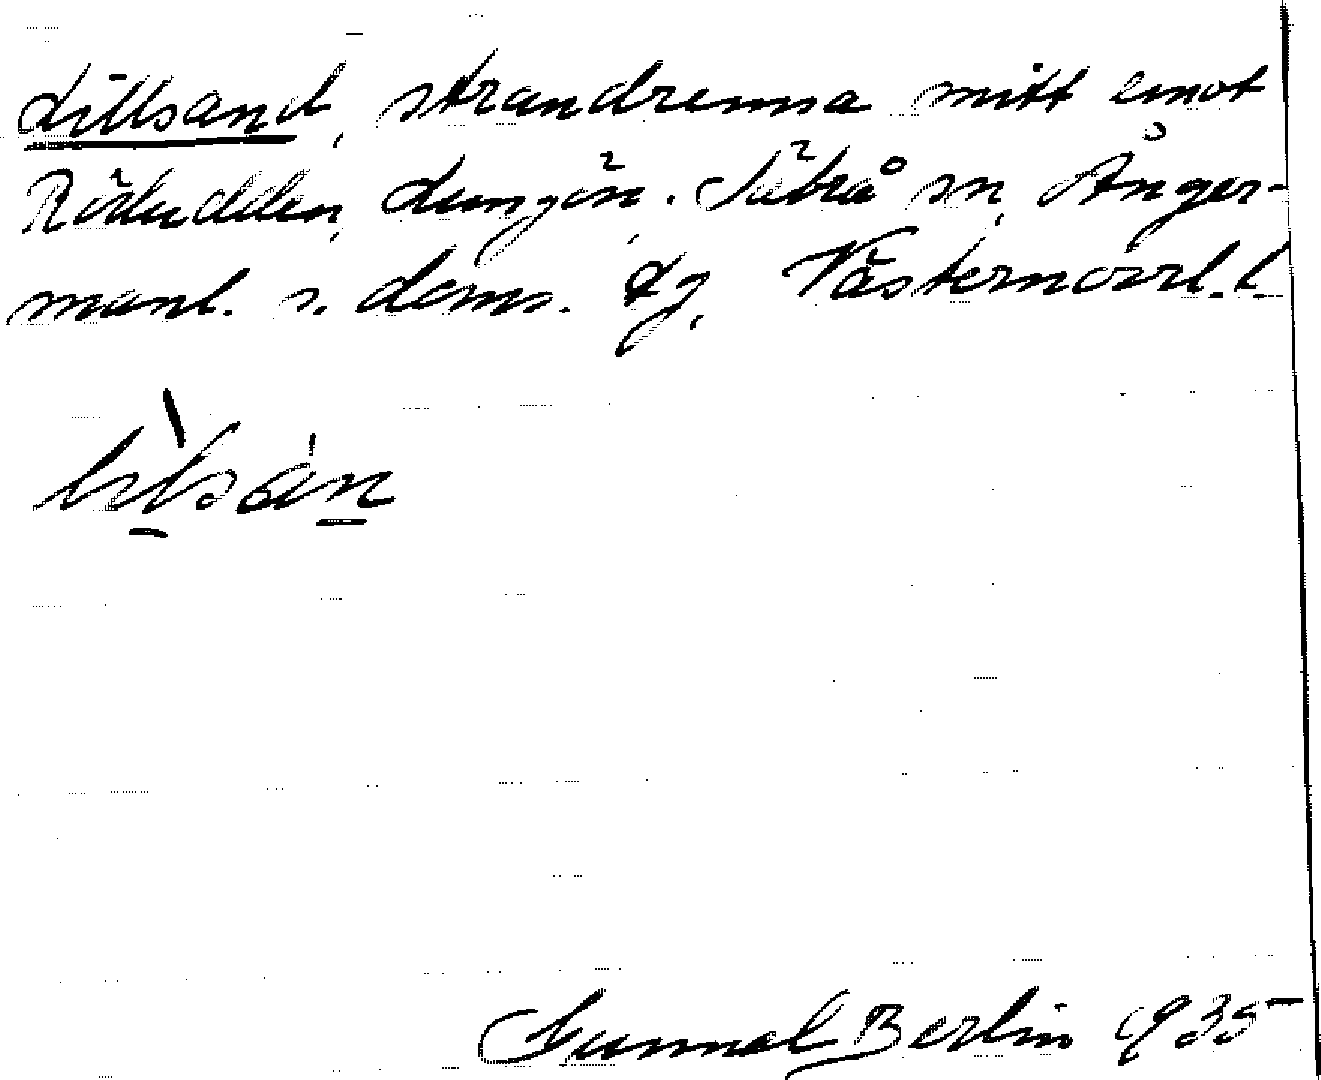 Lillsand, strandremsa mitt emot
Rödudden, Lungön. Säbrå sn, Ånger-
manl. s. doms. dg, Västernorrl. l.
lìlsán
Gunnel Berlin 1935